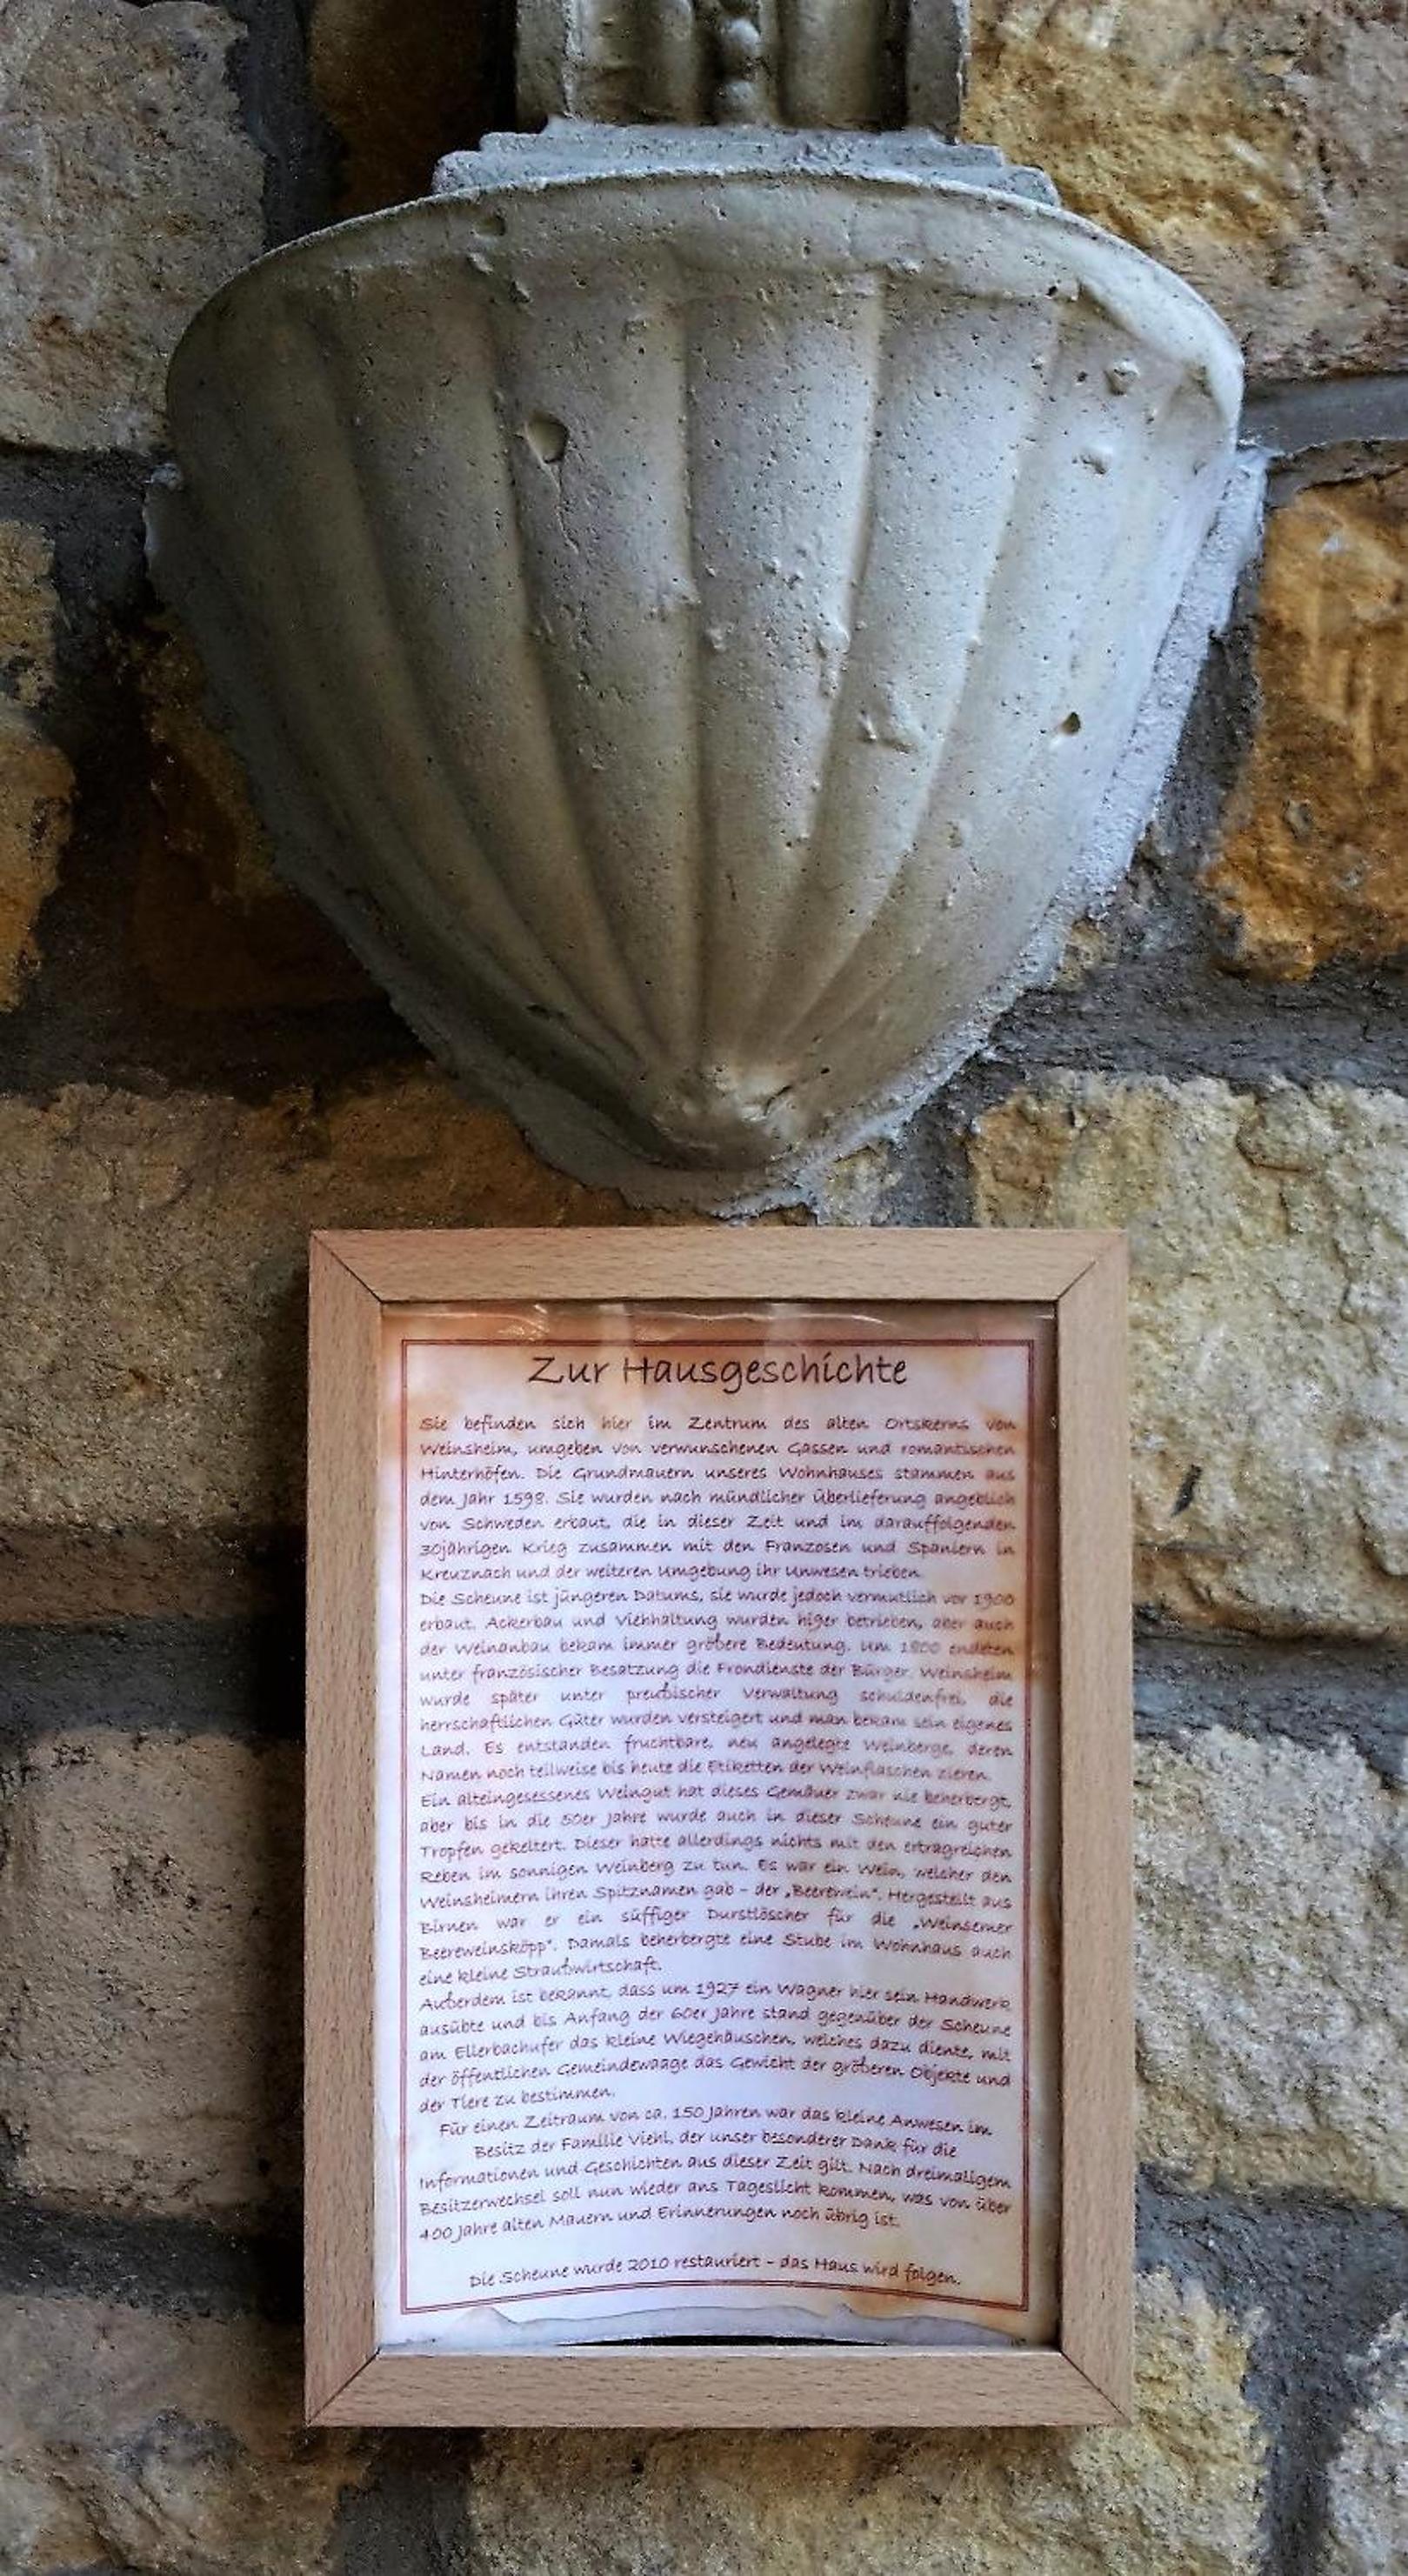 Zur Hausgeschichte
Sie befinden sich hier im Zentrum des alten Ortskerns von
Weinsheim, umgeben von verwunschenen Gassen und romantischen
Hinterhöfen. Die Grundmauern unseres Wohnhauses stammen aus
dem Jahr 1598. Sie wurden nach mündlicher Überlieferung angeblich
von Schweden erbaut, die in dieser Zeit und im darauffolgenden
30jährigen Krieg zusammen mit den Franzosen und Spaniern in
Kreuznach und der weiteren Umgebung ihr Unwesen trieben.
Die Scheune ist jüngeren Datums, sie wurde jedoch vermutlich vor 1900
erbaut. Ackerbau und Viehhaltung wurden hier betrieben, aber auch
der Weinanbau bekam immer größere Bedeutung. Um 1800 endeten
unter französischer Besatzung die Frondienste der Bürger. Weinsheim
wurde später unter preußischer Verwaltung schuldenfrei, die
herrschaftlichen Güter wurden versteigert und man bekam sein eigenes
Land. Es entstanden fruchtbare, neu angelegte Weinberge, deren
Namen noch teilweise bis heute die Etiketten der Weinflaschen zieren.
Ein alteingesessenes Weingut hat dieses Gemäuer zwar nie beherbergt,
aber bis in die 50er Jahre wurde auch in dieser Scheune ein guter
Tropfen gekeltert. Dieser hatte allerdings nichts mit den ertragreichen
Reben im sonnigen Weinberg zu tun. Es war ein Wein, welcher den
Weinsheimern ihren Spitznamen gab – der „Beerewein“. Hergestellt aus
Birnen war er ein süffiger Durstlöscher für die „Weinsemer
Beereweinsköpp“. Damals beherbergte eine Stube im Wohnhaus auch
eine kleine Straußwirtschaft.
Außerdem ist bekannt, dass um 1927 ein Wagner hier sein Handwerk
ausübte und bis Anfang der 60er Jahre stand gegenüber der Scheune
am Ellerbachufer das kleine Wiegehäuschen, welches dazu diente, mit
der öffentlichen Gemeindewaage das Gewicht der größeren Objekte und
der Tiere zu bestimmen.
Für einen Zeitraum von ca. 150 Jahren war das kleine Anwesen im
Besitz der Familie Viehl, der unser besonderer Dank für die
Informationen und Geschichten aus dieser Zeit gilt. Nach dreimaligem
Besitzerwechsel soll nun wieder ans Tageslicht kommen, was von über
400 Jahre alten Mauern und Erinnerungen noch übrig ist.
Die Scheune wurde 2010 restauriert – das Haus wird folgen.